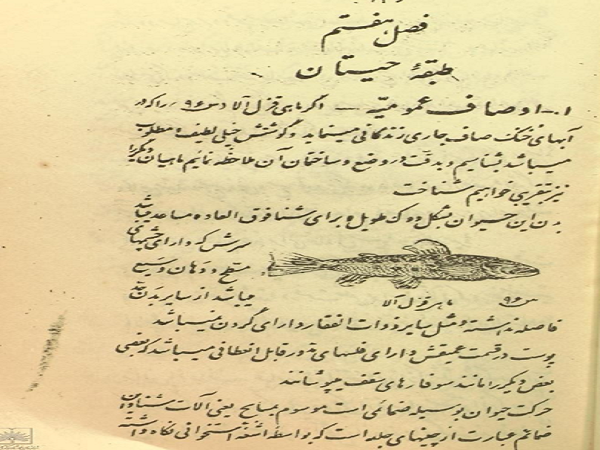 فصل هفتم
طبقهٔ حیتان
۱ـ اوصاف عمومیّه — اگر ماهی قزل آلا دس ۹۶ را که در
آبهای خنک صاف جاری زندگانی مینماید و گوشتش خیلی لطیف و مطلوب
میباشد بشناسیم و بدقت در وضع و ساختمان آن ملاحظه نمائیم ماهیان دیگر را
نیز بتقریبی خواهیم شناخت
بدن این حیوان بشکل دوکی طویل و برای شنا فوق العاده مساعد میباشد
سرش که دارای چشمهای
مسطح و دهان وسیع
میباشد از سایر بدن بلا
س ۹۶ ماهی قزل آلا
فاصله نداشته و مثل سایر ذوات الفقار دارای گردن نمیباشد
پوست در قسمت عمیقش دارای فلسهای مدور قابل انعطافی میباشد که بعضی
بعض دیگر را مانند سوفارهای سقف میپوشانند
حرکت حیوان بوسیله ضمائمی است موسوم بمسابح یعنی آلات شناوری این
ضمائم عبارت از چینهای جلد است که بواسطهٔ اشعهٔ استخوانی نگاه داشته